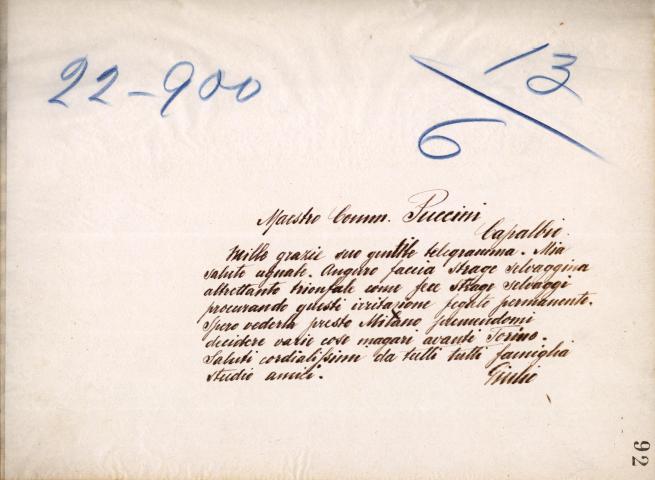 22-900
13
6
Maestro Comm. Puccini
Capalbio.
Mille grazie suo gentile telegramma. Mia
salute uguale. Auguro faccia strage selvaggina
altrettanto trionfale come fece strage selvaggi
procurando questi irritazione fegato permanente.
Spero vederla presto Milano premendomi
decidere varie cose magari avante Torino.
Saluti cordialissimi da tutti tutti famiglia
studio amici. Giulio
92